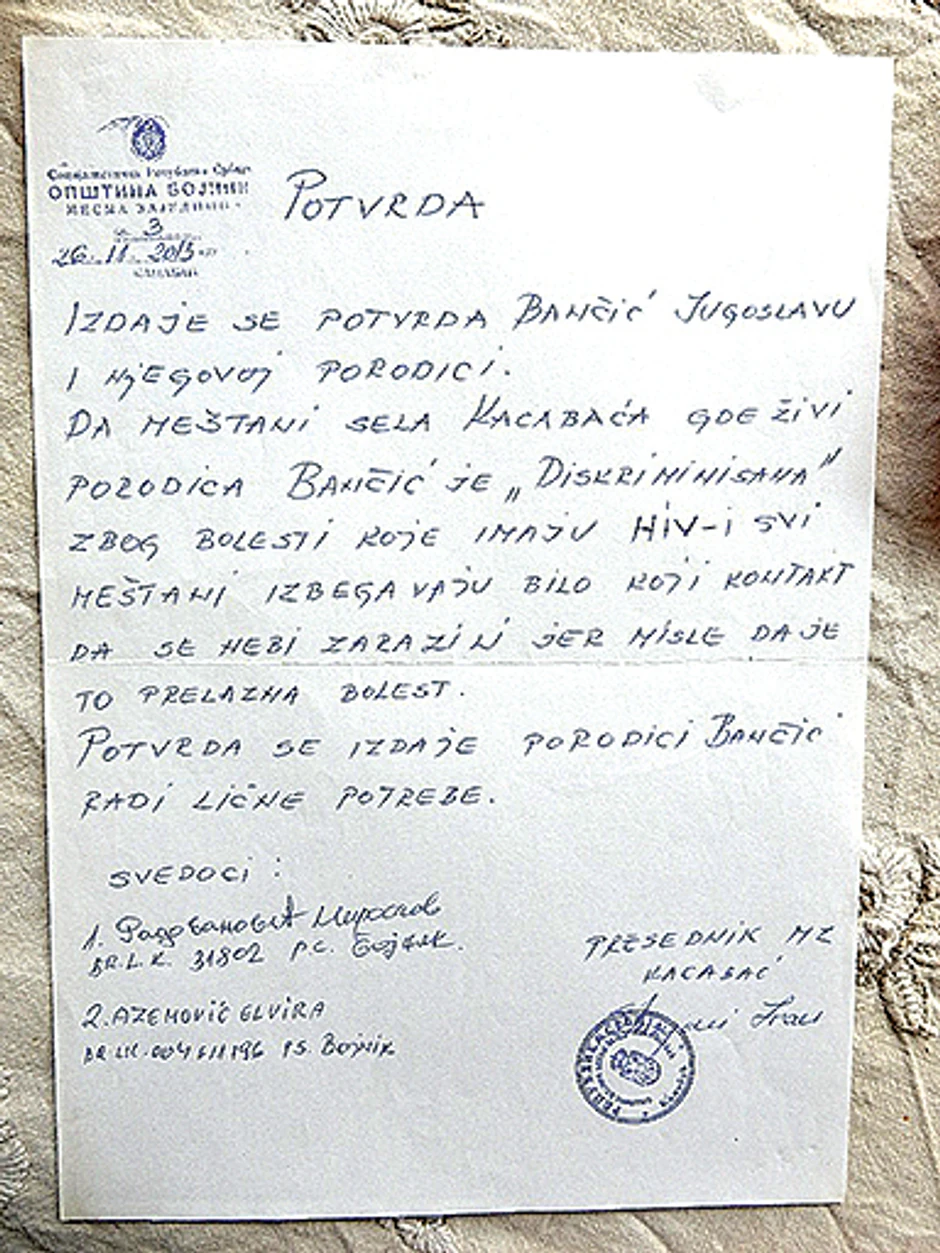 ОПШТИНА БОЈНИК
МЕСНА ЗАЈЕДНИЦА
3
26. 11. 2015
POTVRDA
IZDAJE SE POTVRDA BANČIĆ JUGOSLAVU
I NJEGOVOJ PORODICI.
DA MEŠTANI SELA KACABAĆA GDE ŽIVI
PORODICA BANČIĆ JE „DISKRIMINISANA"
ZBOG BOLESTI KOJE IMAJU HIV-I SVI
MEŠTANI IZBEGAVAJU BILO KOJI KONTAKT
DA SE NEBI ZARAZILI JER MISLE DA JE
TO PRELAZNA BOLEST.
POTVRDA SE IZDAJE PORODICI BANČIĆ
RADI LIČNE POTREBE.
SVEDOCI :
1. Радовановић Мирослав
BR.L.K. 31802 P.C. Бојник.
2. AZEMOVIĆ ELVIRA
BR LK. PS. Bojnik
PRESEDNIK MZ
KACABAĆ